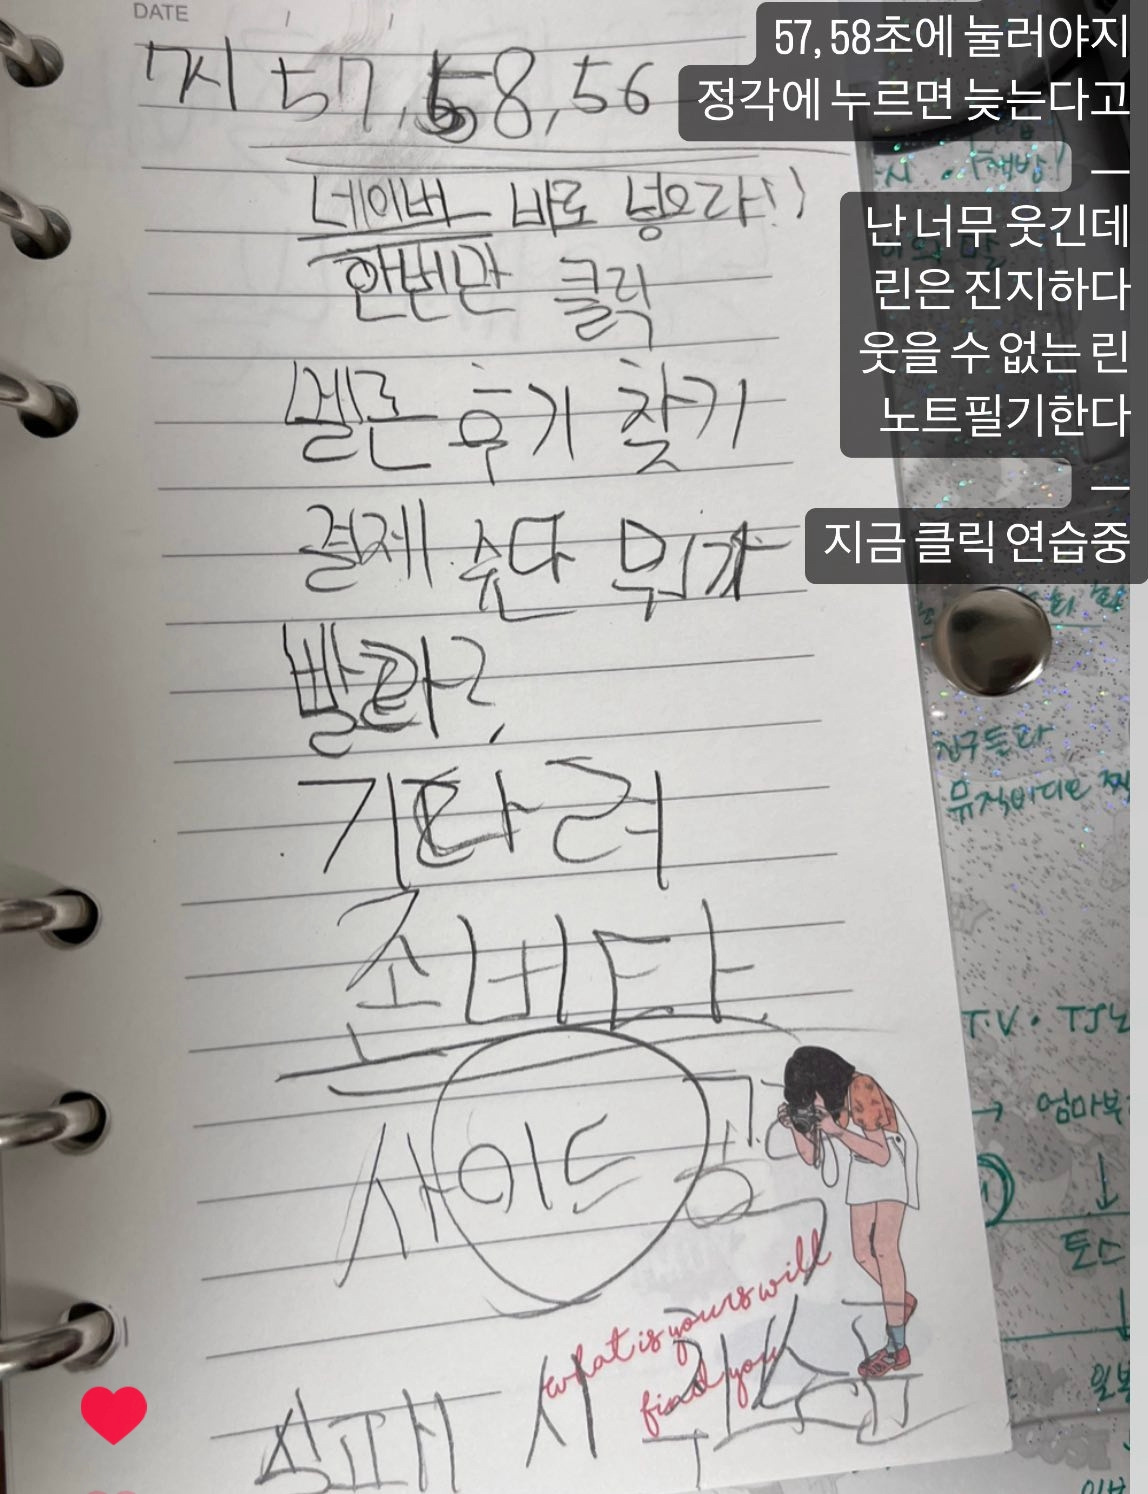 DATE
57, 58, 56
네이버 바로 넣으라!!
한번만 클릭
멜론 후기 찾기
결제 수단 뭐가
빨라?
기다려
존버다
사이드 공
실패 시 취소
what is yours will
find you
57, 58초에 눌러야지
정각에 누르면 늦는다고
—
난 너무 웃긴데
린은 진지하다
웃을 수 없는 린
노트필기한다
—
지금 클릭 연습중
친구들과
뮤직비디오
T.V.
엄마
토스